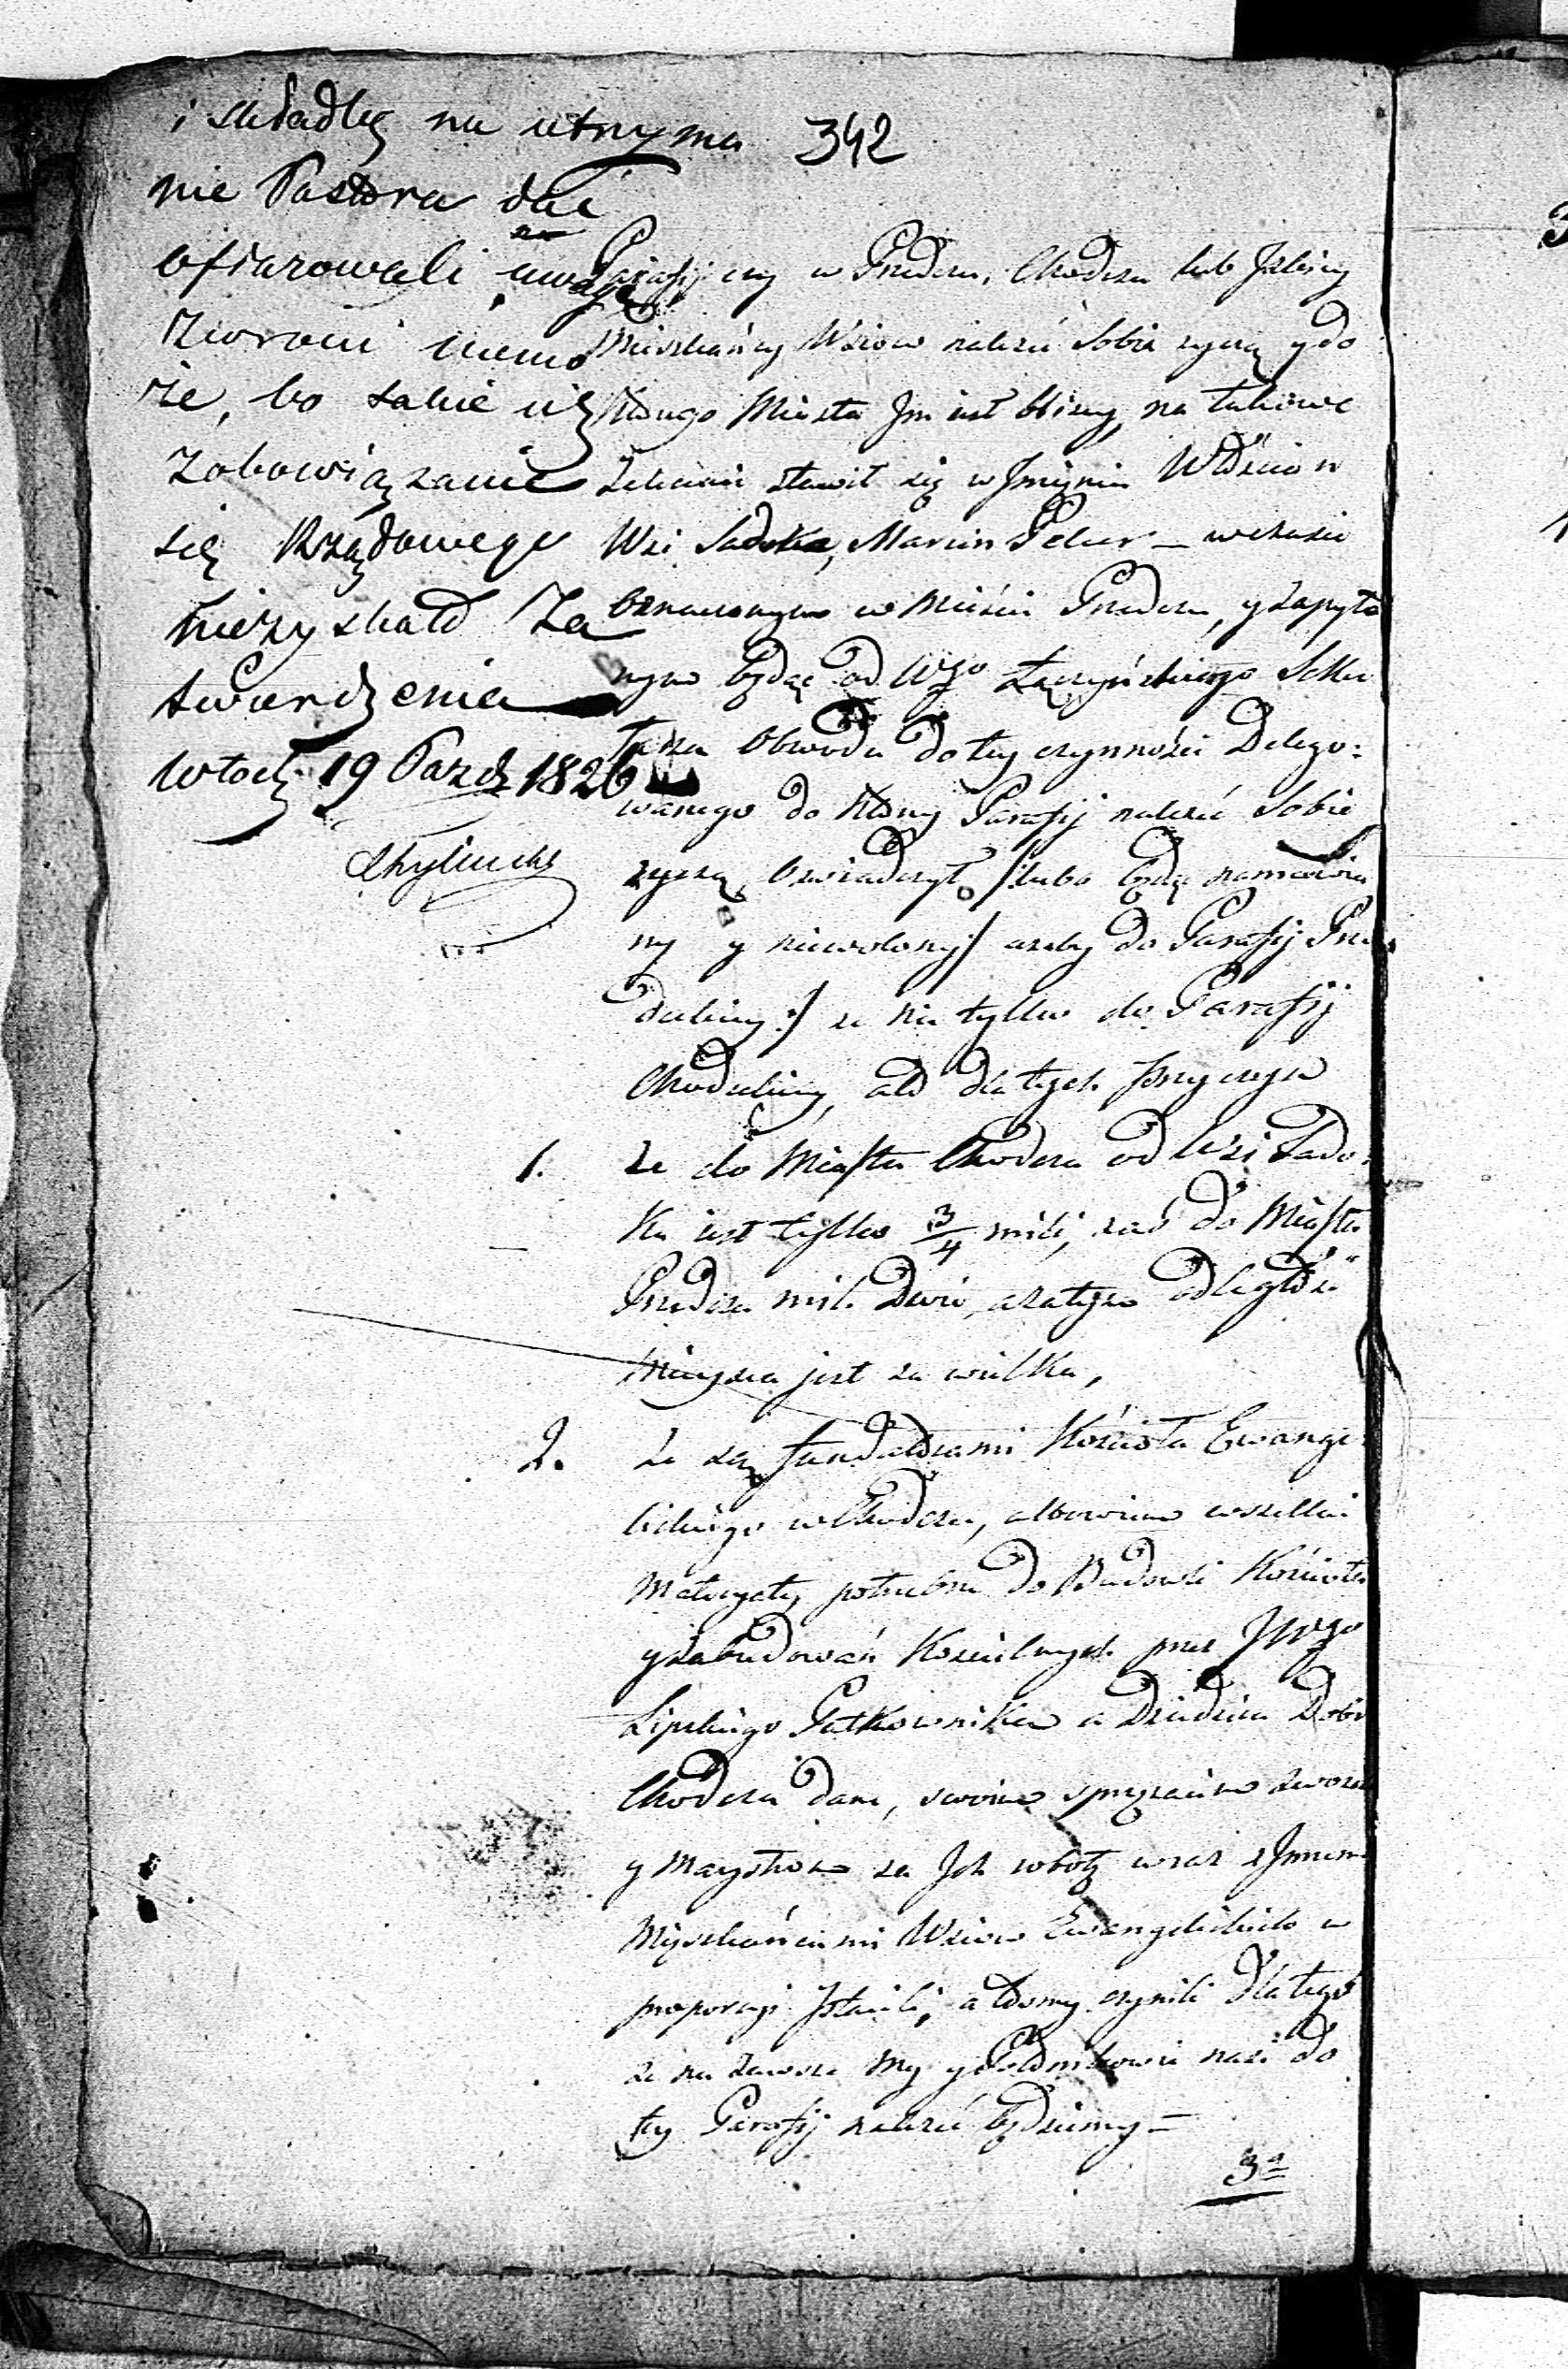 342
i składkę na utrzyma
nie Pastora dać
ofiarowali, na uwagę
Zwrocić niemo
że, bo takie ich
Zobowiązanie
się Rządowego
niezyskało Za
twierdzenia
19 Pazdz 1826
Parafij czy w Przedczu, Chodczu lub Izbicy
Mieszkańcy Wsiow należeć Sobie zyczą y do
ktorego Miasta Im iest bliżey, na takowe
Zalecenie stawił się w Imieniu Włościan
Wsi Sadoka, Marcin Peler – w czasie
oznaczonym w Mieście Przedczu, y zapyta
nym będąc od Wgo Łączyńskiego Sekre
tarza Obwodu do tey czynności Delego:
wanego do ktorey Parafij należeć Sobie
zyczą, Oswiadczył /:lubo będąc namawia
ny y niewolony/ azeby do Parafij Prze
deckiey:/ ze nie tylko do Parafij
Chodeckiey, ale dla tych Przyczyn
1. że do Miasta Chodcza od Wsi Sado:
ka iest tylko 3/4 mili, zaś do Miasta
Przedcza mil Dwie, a zatym odległość
Mieysca jest za wielka,
2. że są fundatorami Kościoła Ewange
lickiego w Chodczu, albowiem wszelkie
Materyały potrzebne do Budowli Kościoła
y zabudowań Kościelnych przez JWgo
Lipskiego Pułkownika a Dziedzica Dobr
Chodcza dane, swoim sprzężaiem zwozili
y Maystrow za Ich robotę wraz z Innemi
Mieszkańcami Wsiow Ewangelickich w
proporcyi płacili, a to my czynili dla tego
że na zawsze my y Potomkowie nasi do
tey Parafij należeć będziemy –
3º